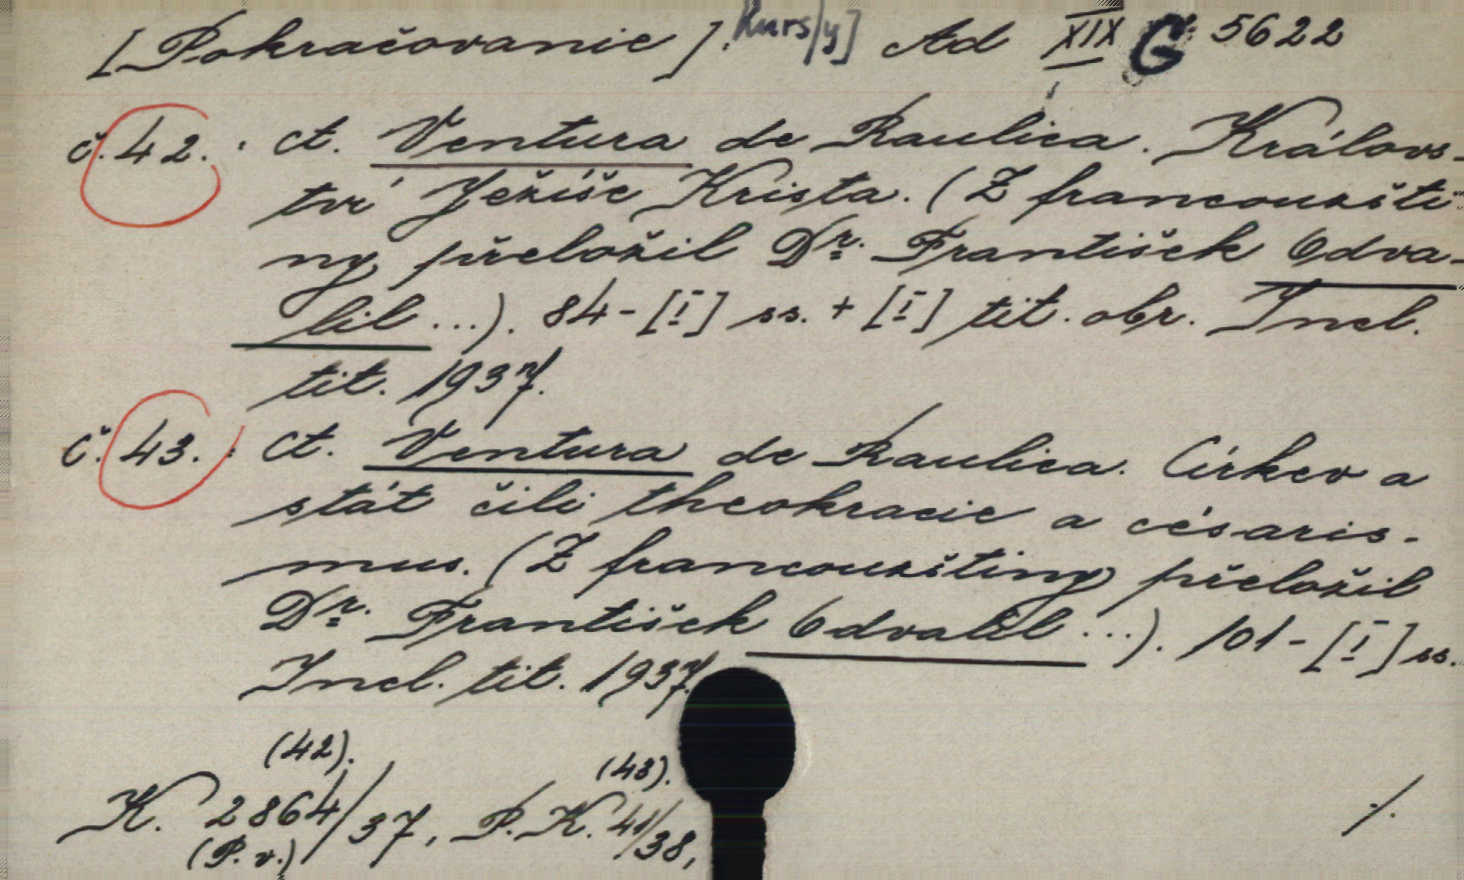 [Pokračovanie]. Kurs/y] Ad XIX G 5622
č. 42. : ct. Ventura de Raulica. Královs-
tví Ježíše Krista. (Z francouzšti-
ny přeložil Dr. František Odva-
lil ...). 84-[I] ss. + [I] tit. obr. Incl.
tit. 1937.
č. 43. : ct. Ventura de Raulica. Církev a
stát čili theokracie a césaris-
mus. (Z francouzštiny přeložil
Dr. František Odvalil ...). 101-[I] ss.
Incl. tit. 1937.
(42). (43).
K. 2864/37, P. K. 41/38,
(P. v.)
./.